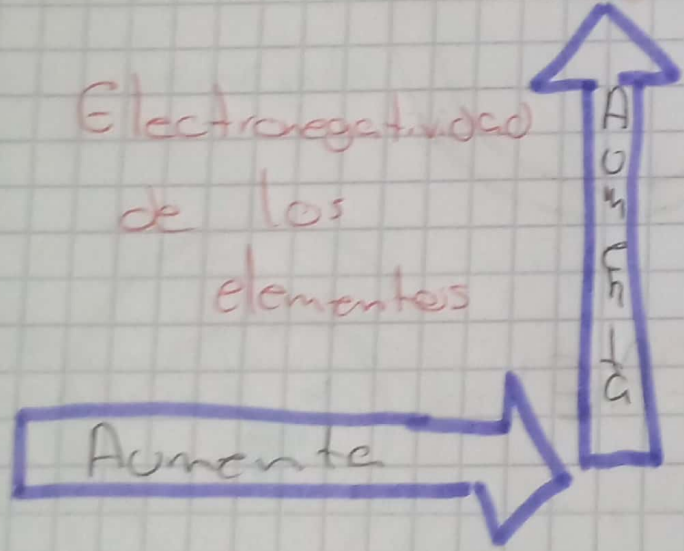 Electronegatividad
de los
elementos
Aumenta
Aumenta